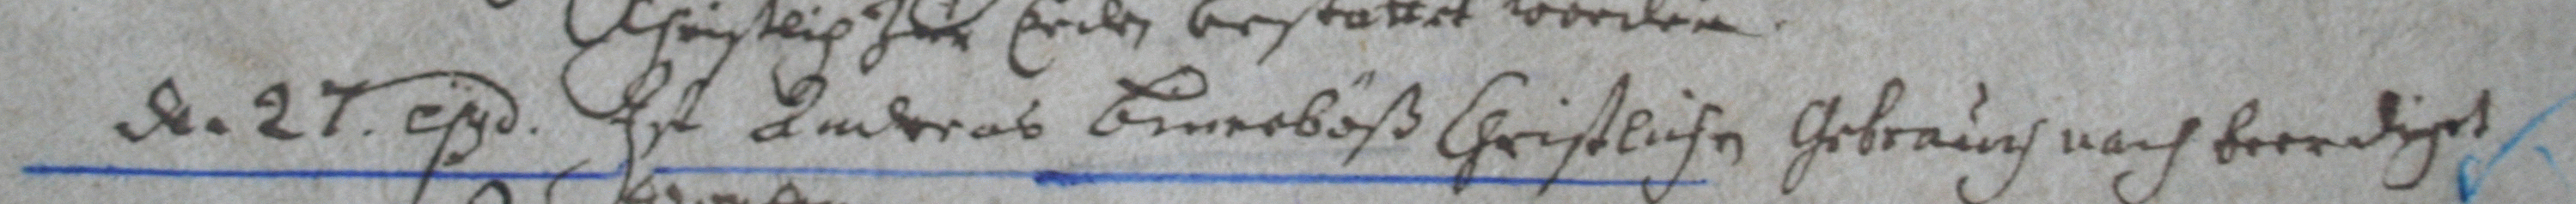 Christlich zur Erden bestattet worden.
den 27. ejusd. Ist Andreas Christlichen Gebrauch nach beerdiget
worden